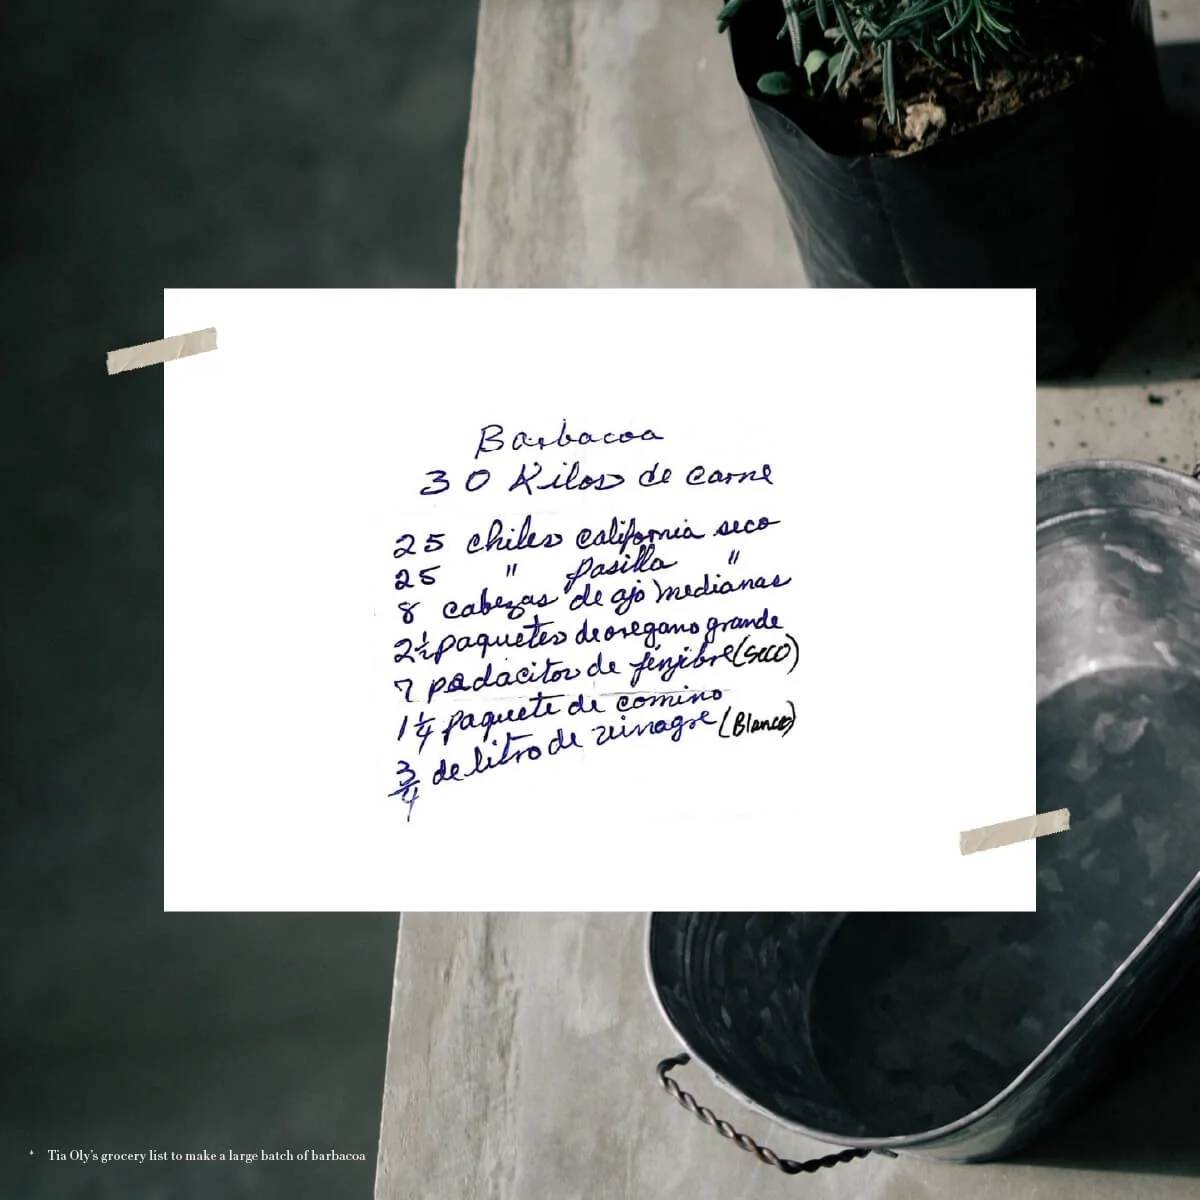 Barbacoa
30 Kilos de carne
25 chiles california seco
25 " pasilla "
8 cabezas de ajo medianas
2 1/2 paquetes de oregano grande
7 padacitos de jinjibre (seco)
1 1/4 paquete de comino
3/4 de litro de vinagre (Blanco)
* Tia Oly's grocery list to make a large batch of barbacoa